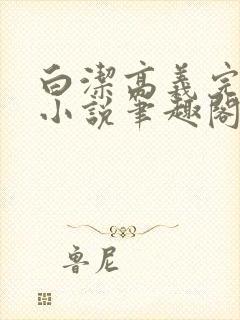 白潔高義完
小說筆趣閣
魯尼